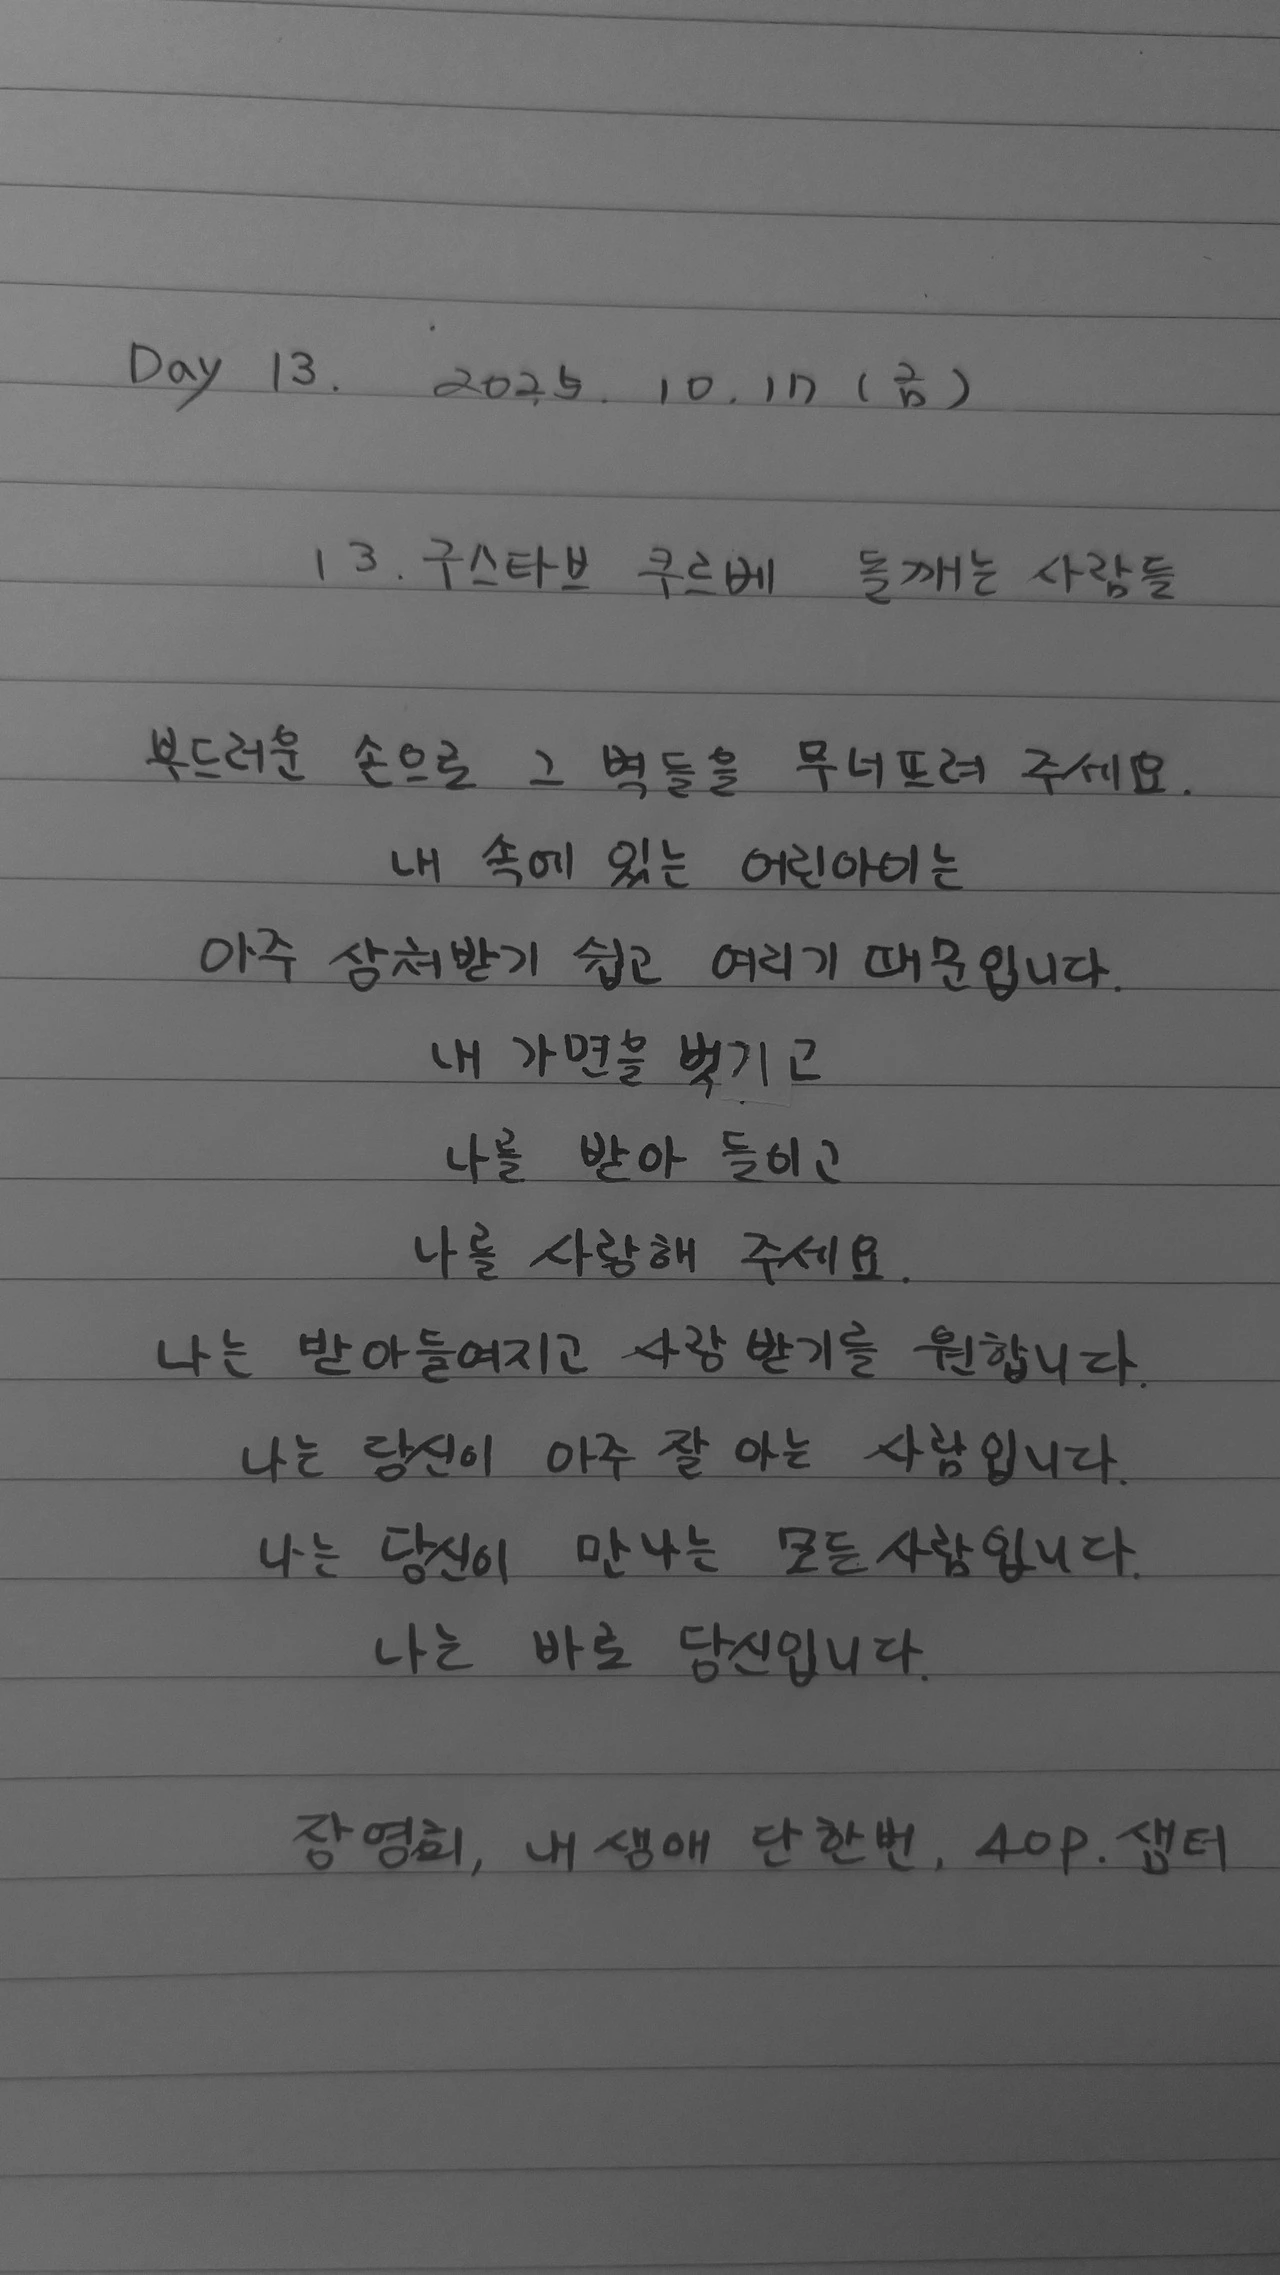 Day 13. 2025. 10. 17 (금)
13. 구스타브 쿠르베 돌깨는 사람들
부드러운 손으로 그 벽들을 무너뜨려 주세요.
내 속에 있는 어린아이는
아주 상처받기 쉽고 여리기 때문입니다.
내 가면을 벗기고
나를 받아 들이고
나를 사랑해 주세요.
나는 받아들여지고 사랑받기를 원합니다.
나는 당신이 아주 잘 아는 사람입니다.
나는 당신이 만나는 모든 사람입니다.
나는 바로 당신입니다.
장영희, 내 생애 단 한번, 40p. 샘터